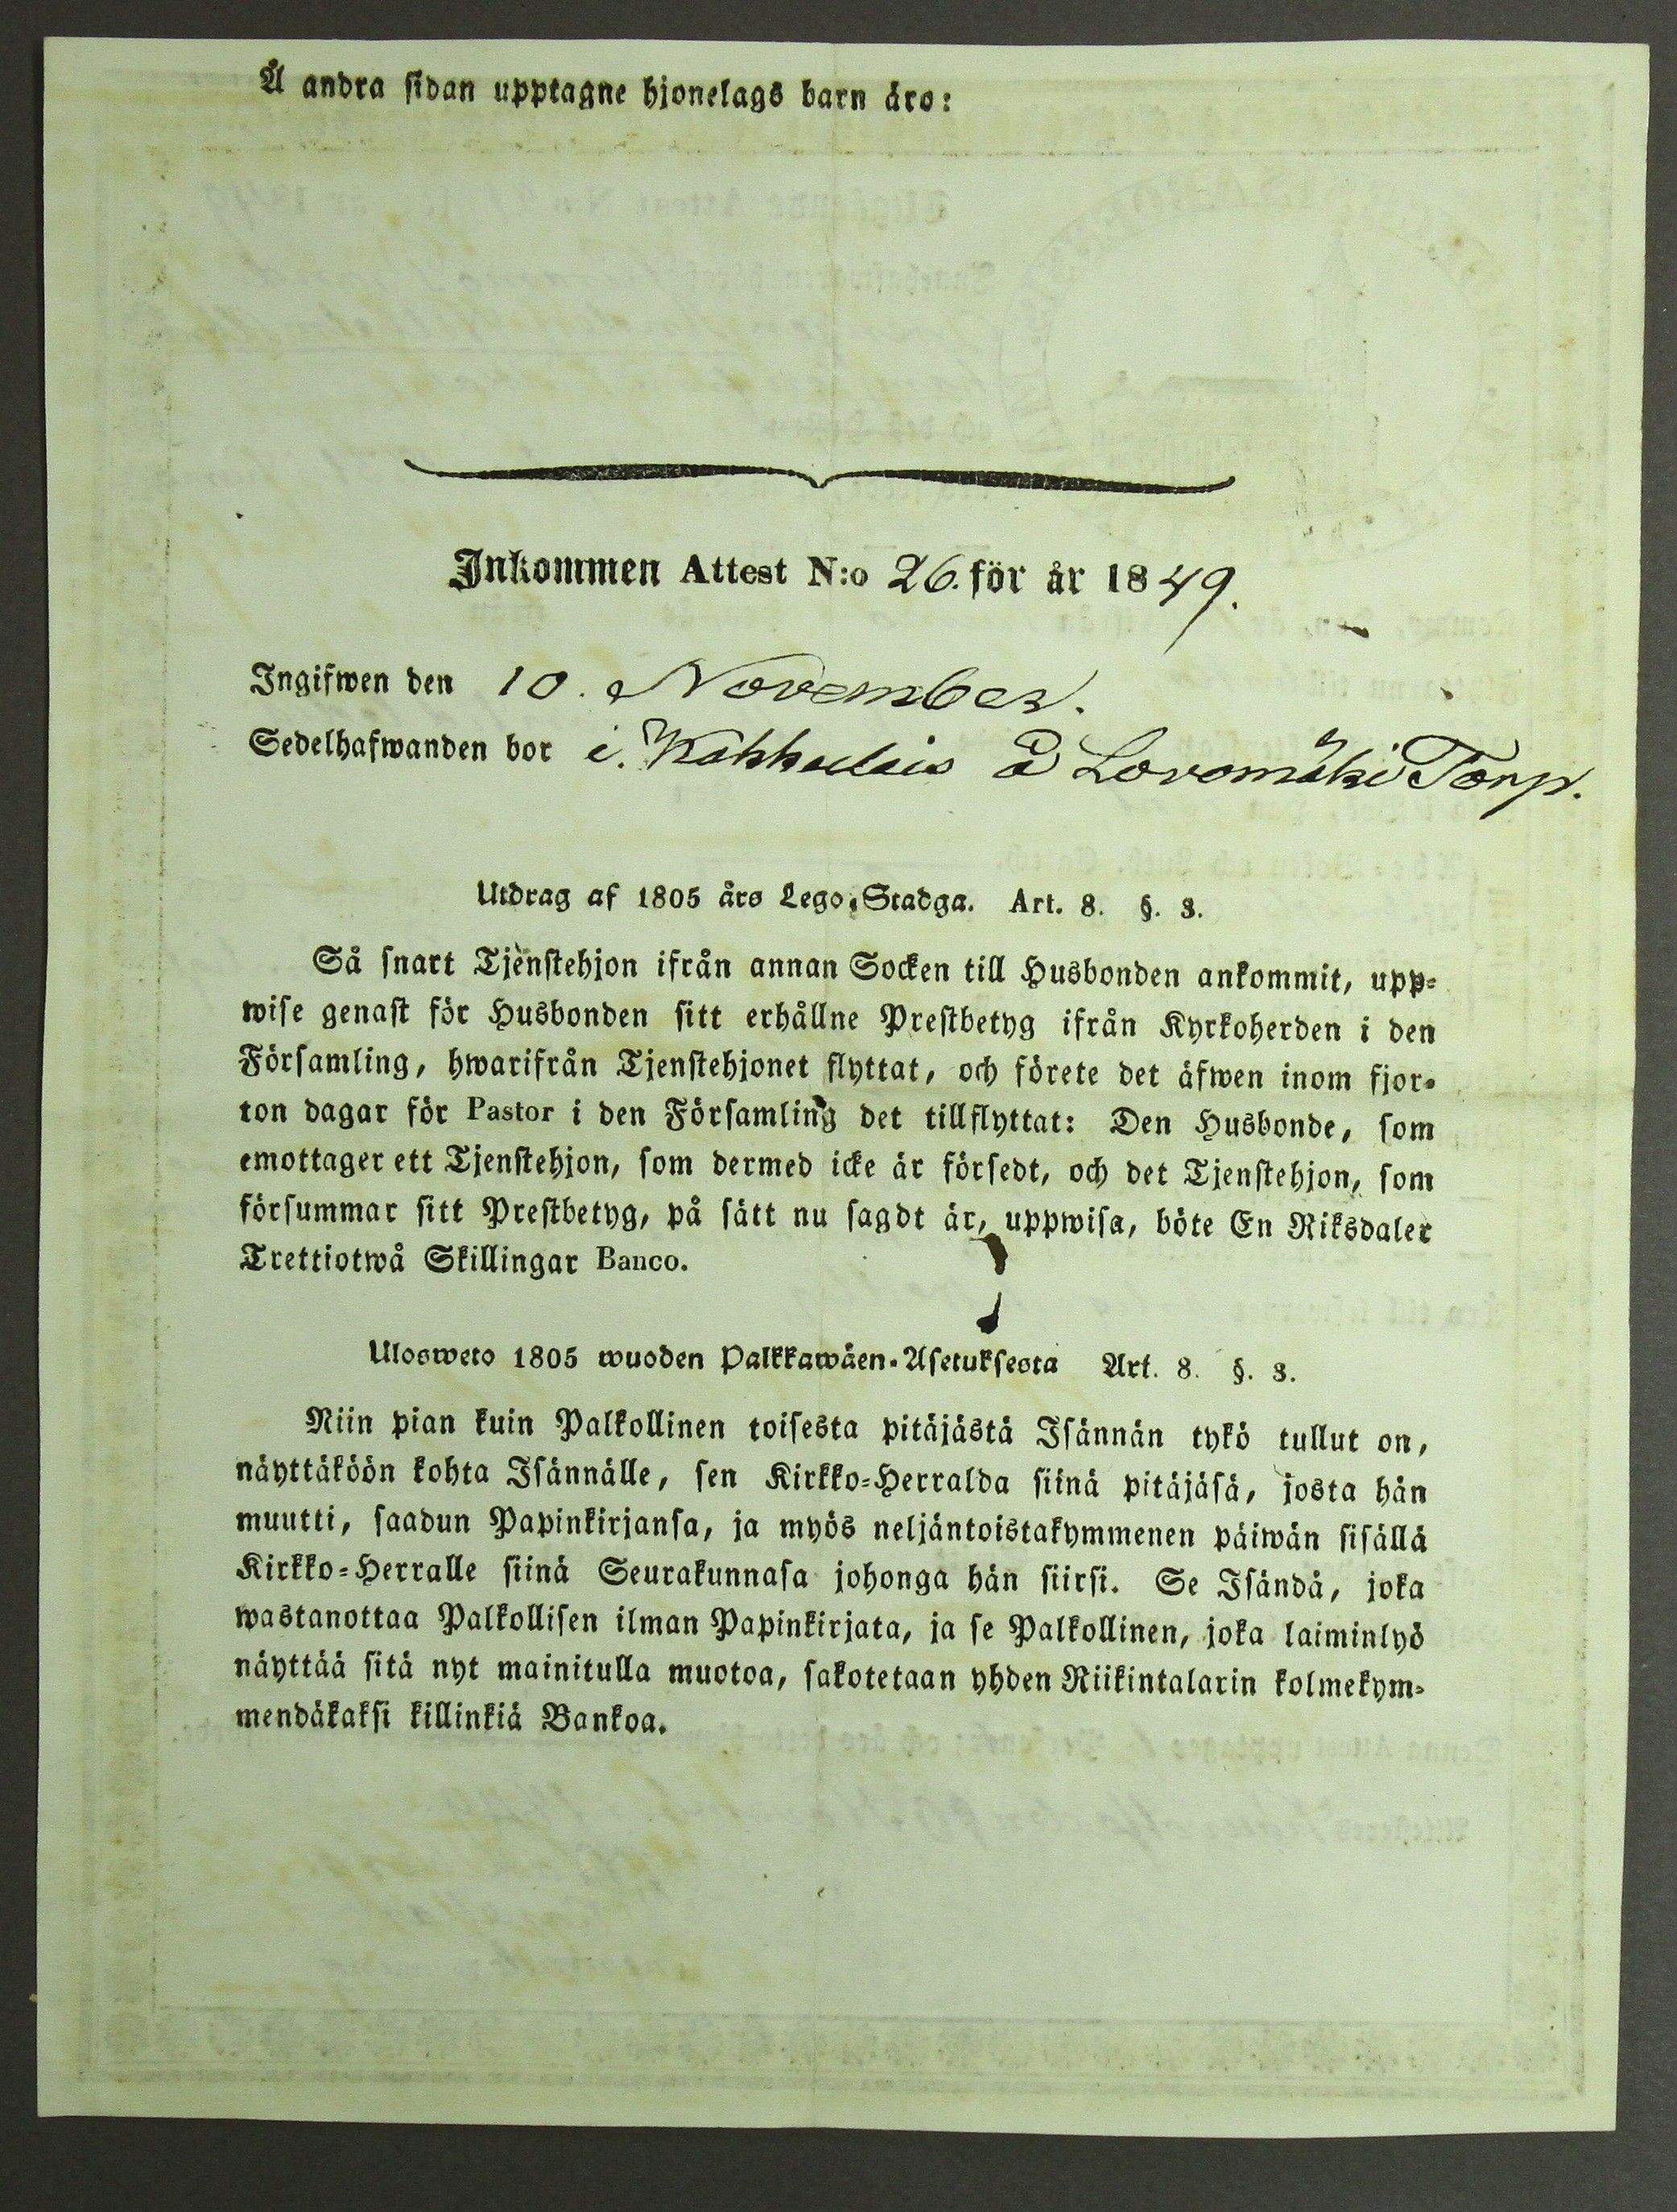 Å andra sidan upptagne hjonelags barn äro:
Inkommen Attest N:o 26. för år 1849.
Ingifwen den 10. November.
Sedelhafwanden bor i. å Lovomäki Torp.
Utdrag af 1805 års Lego-Stadga. Art. 8. §. 3.
Så snart Tjenstehjon ifrån annan Socken till Husbonden ankommit, upp-
wise genast för Husbonden sitt erhållne Prestbetyg ifrån Kyrkoherden i den
Församling, hwarifrån Tjenstehjonet flyttat, och förete det äfwen inom fjor-
ton dagar för Pastor i den Församling det tillflyttat: Den Husbonde, som
emottager ett Tjenstehjon, som dermed icke är försedt, och det Tjenstehjon, som
försummar sitt Prestbetyg, på sätt nu sagdt är, uppwisa, böte En Riksdaler
Trettiotwå Skillingar Banco.
Ulosweto 1805 wuoden Palkkawäen-Asetuksesta Art. 8. §. 3.
Niin pian kuin Palkollinen toisesta pitäjästä Isännän tykö tullut on,
näyttäköön kohta Isännälle, sen Kirkko-Herralda siinä pitäjäsä, josta hän
muutti, saadun Papinkirjansa, ja myös neljäntoistakymmenen päiwän sisällä
Kirkko-Herralle siinä Seurakunnasa johonga hän siirsi. Se Isändä, joka
wastanottaa Palkollisen ilman Papinkirjata, ja se Palkollinen, joka laiminlyö
näyttää sitä nyt mainitulla muotoa, sakotetaan yhden Riikintalarin kolmekym-
mendäkaksi killinkiä Bankoa.